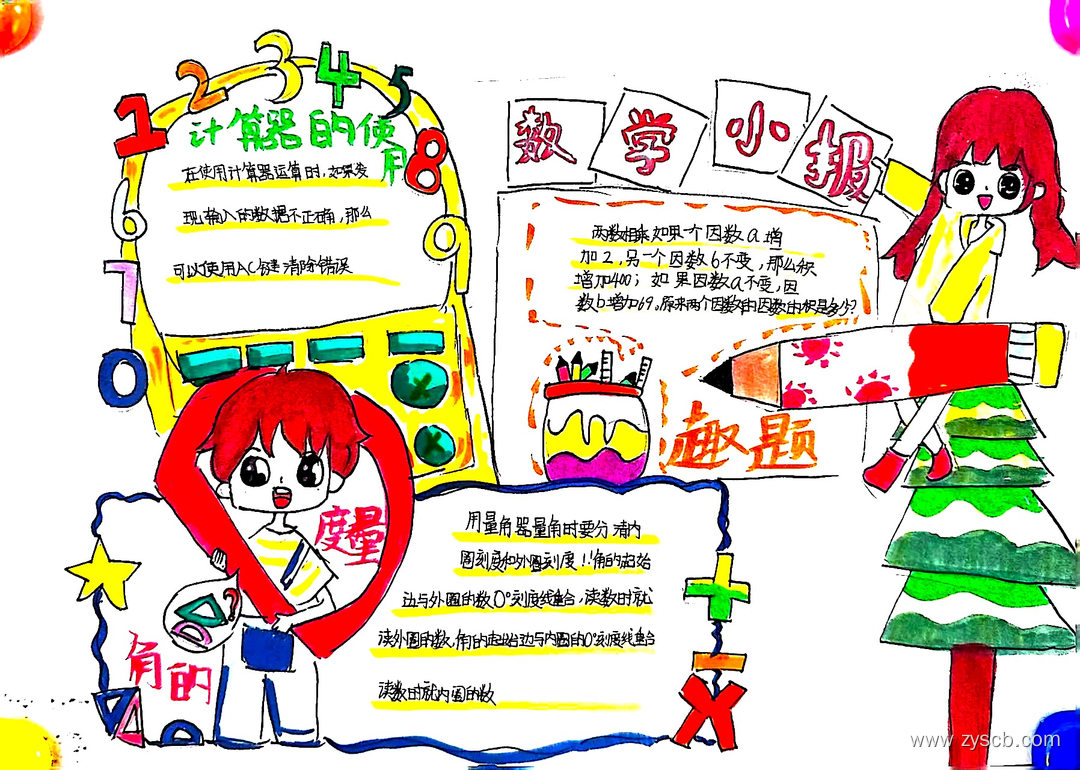 1 2 3 4 5
计算器的使用
6 7 8 9 0
在使用计算器运算时,如果发
现输入的数据不正确,那么
可以使用AC键清除错误
数学小报
两数相乘如果一个因数a增
加2,另一个因数b不变,那么积
增加400;如果因数a不变,因
数b增加69,原来两个因数的因数的积是多少?
趣题
角的
度量
用量角器量角时要分清内
圈刻度和外圈刻度!!角的起始
边与外圈的数0°刻度线重合,读数时就
读外圈的数,角的起始边与内圈的0°刻度线重合
读数时就内圈的数
www.zyscb.com